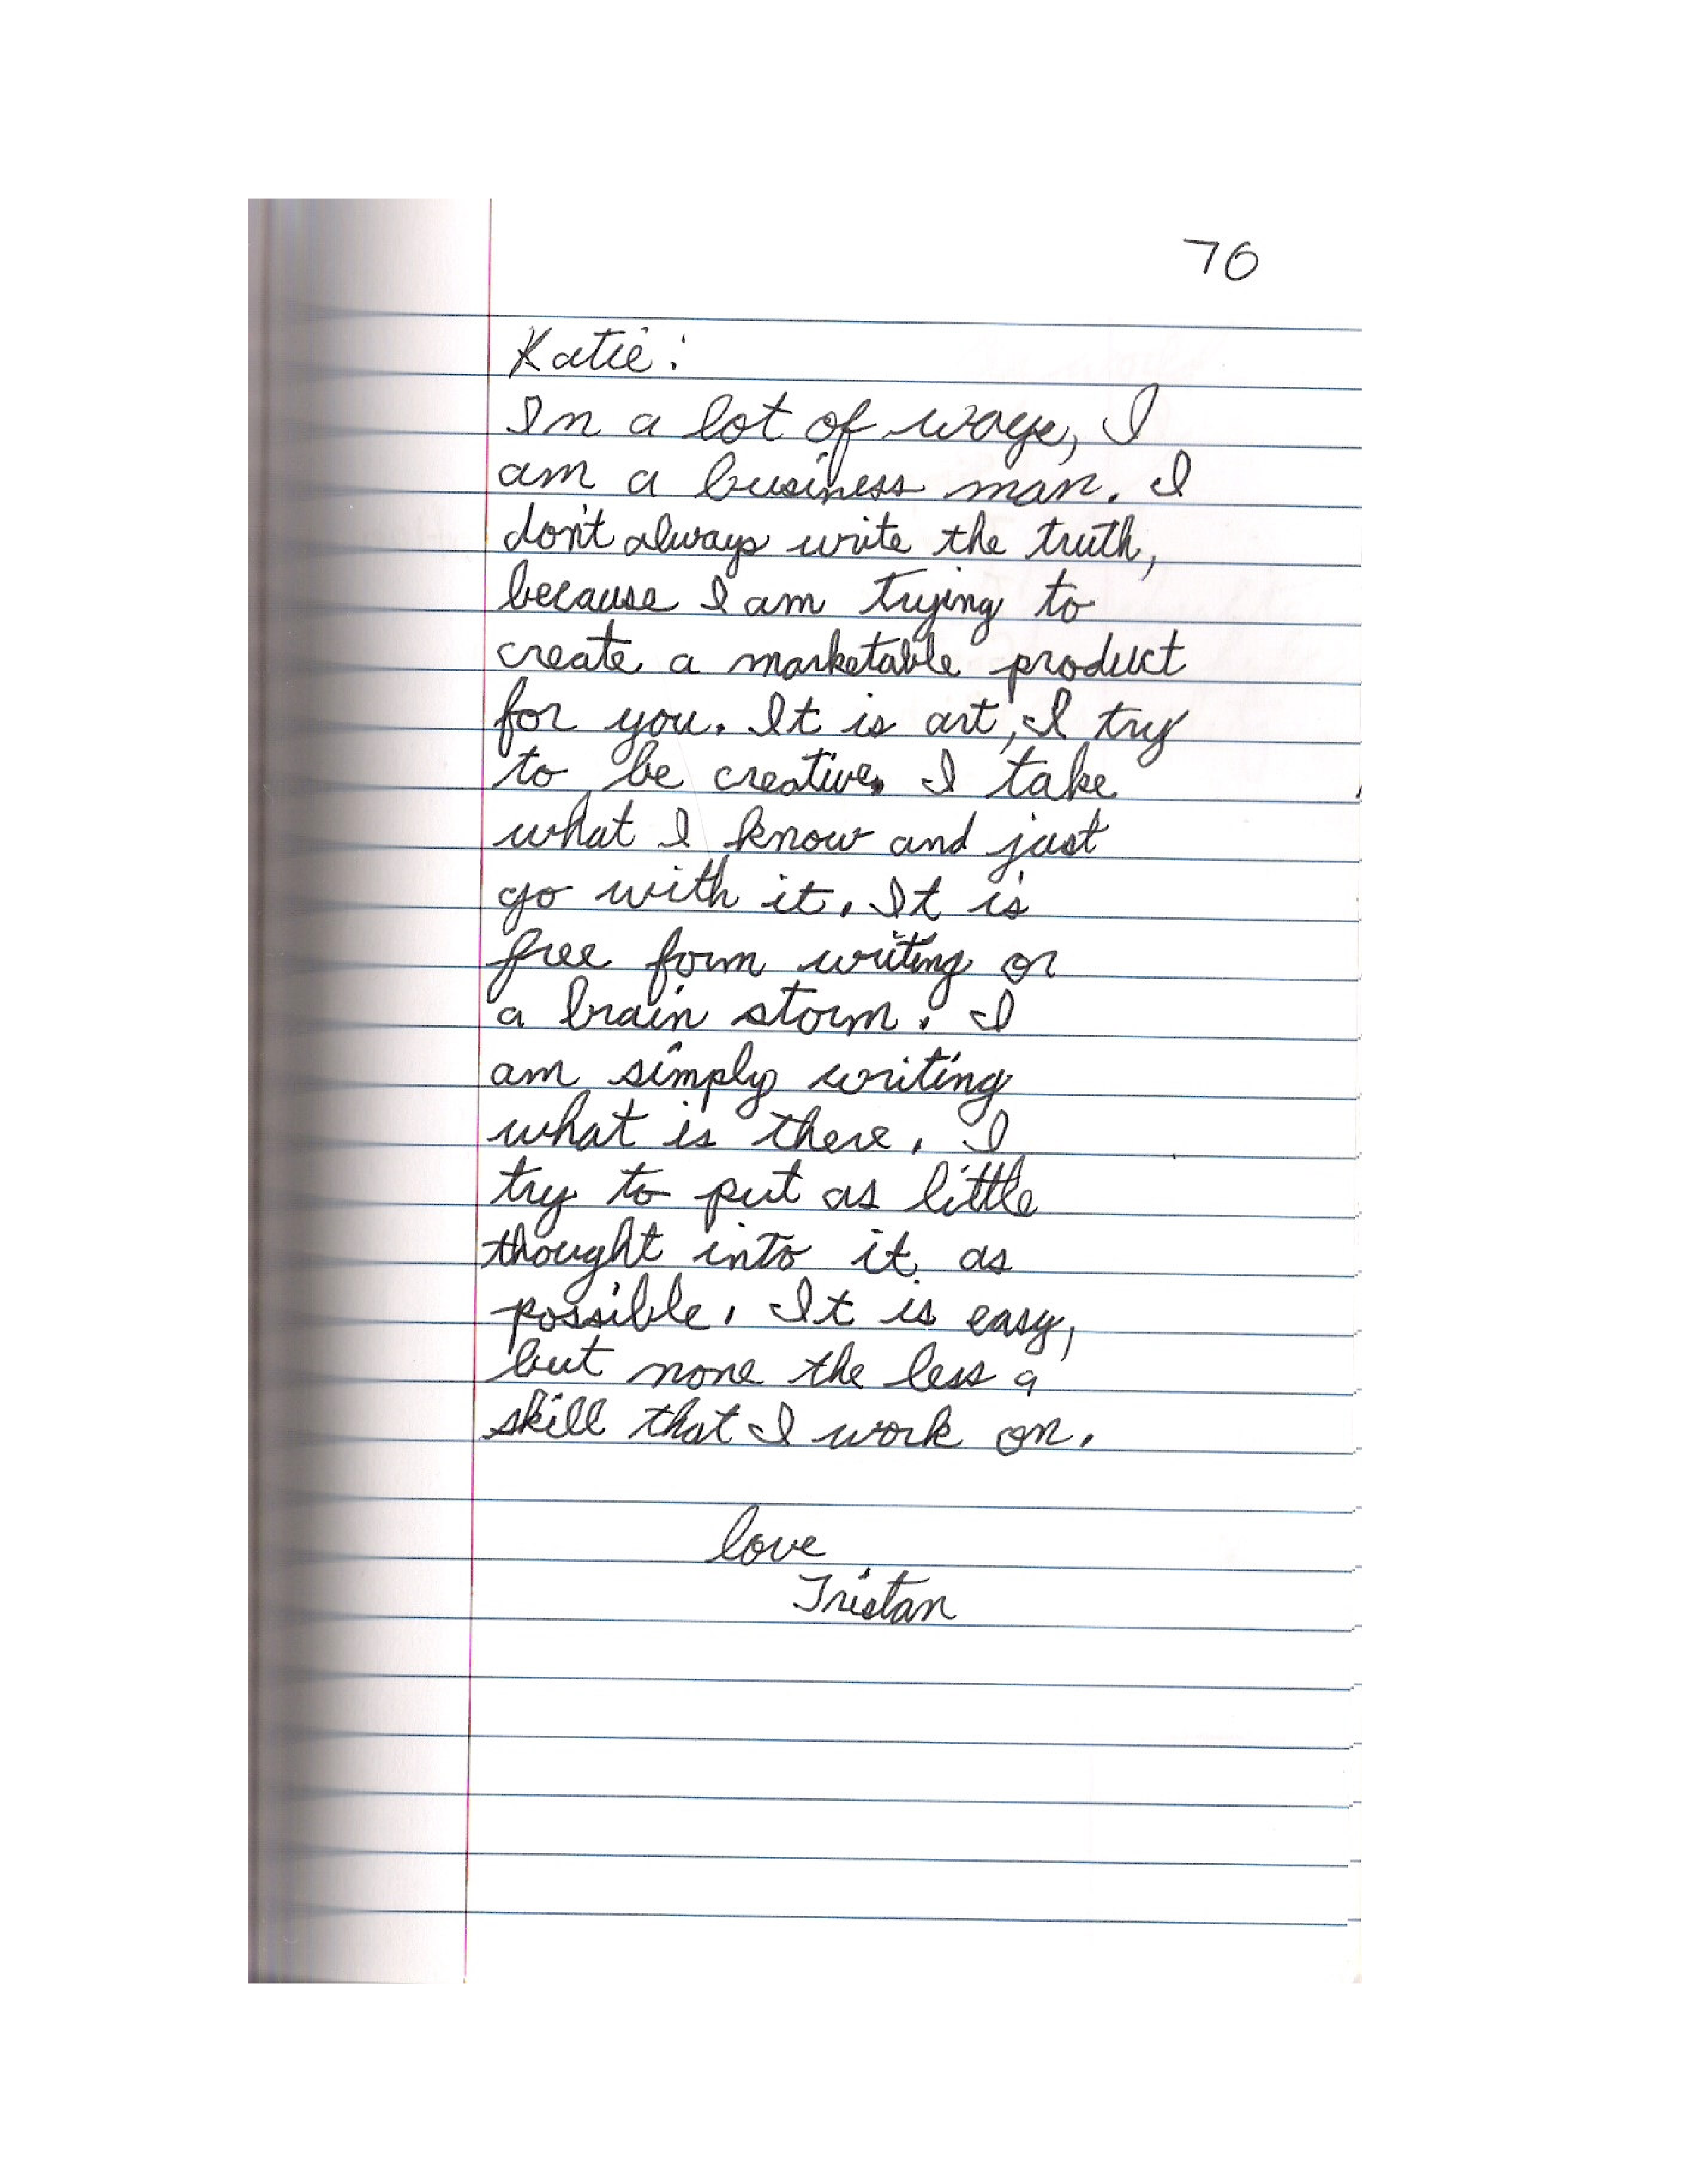 76
Katie:
In a lot of ways, I
am a business man. I
don't always write the truth,
because I am trying to
create a marketable product
for you. It is art, I try
to be creative. I take
what I know and just
go with it. It is
free form writing or
a brain storm. I
am simply writing
what is there. I
try to put as little
thought into it as
possible. It is easy,
but none the less a
skill that I work on.
love
Tristan